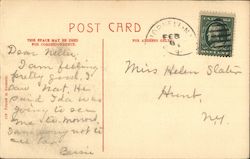 POST CARD
THIS SPACE MAY BE USED
FOR CORRESPONDENCE.
FOR ADDRESS ONLY.
FEB
6
Dear Nellie,
I am feeling
pretty good, I
saw Nat. He
said Ida was
going to see
me to-morrow,
I am sorry not to
see
Bessie
Miss Helen Slater
Hunt,
N.Y.